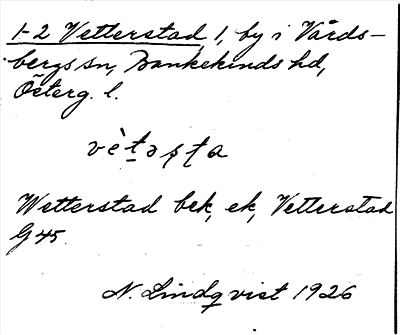 1-2 Vetterstad, 1, by i Vårds-
bergs sn, Bankekinds hd,
Österg. l.
vètəsta
Wetterstad bek, ek, Vetterstad
G 45.
N. Lindqvist 1926